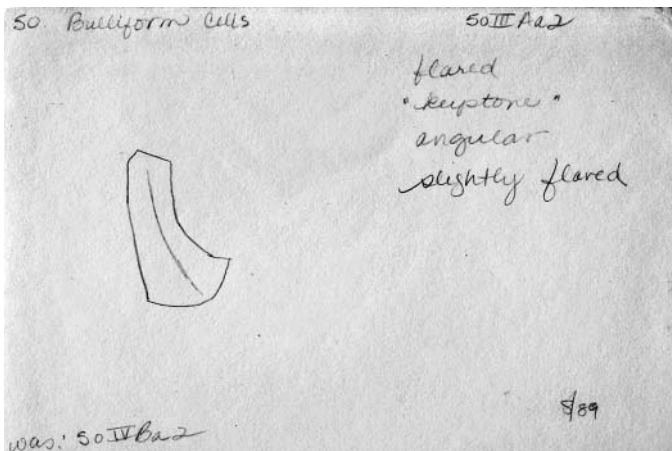 50. Bulliform Cells
50 III Aa2
flared
"keystone"
angular
slightly flared
8/89
was: 50 IV Ba2